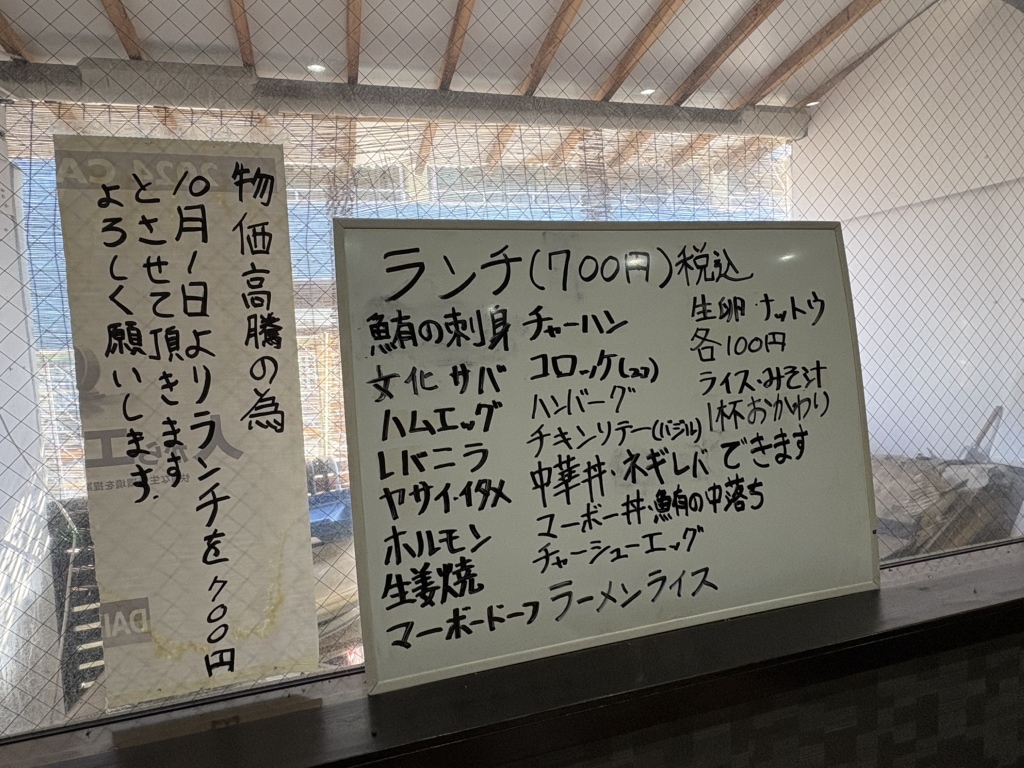 物価高騰の為
10月1日よりランチを700円
とさせて頂きます
よろしく願いします。
ランチ(700円)税込
鮪の刺身
文化サバ
ハムエッグ
レバニラ
ヤサイ・イタメ
ホルモン
生姜焼
マーボードーフ
チャーハン
コロッケ(2コ)
ハンバーグ
チキンソテー(バジル)
中華丼・ネギレバ
マーボー丼・鮪の中落ち
チャーシューエッグ
ラーメンライス
生卵・ナットウ
各100円
ライス・みそ汁
1杯おかわり
できます
2024 CA
人
工
DAI